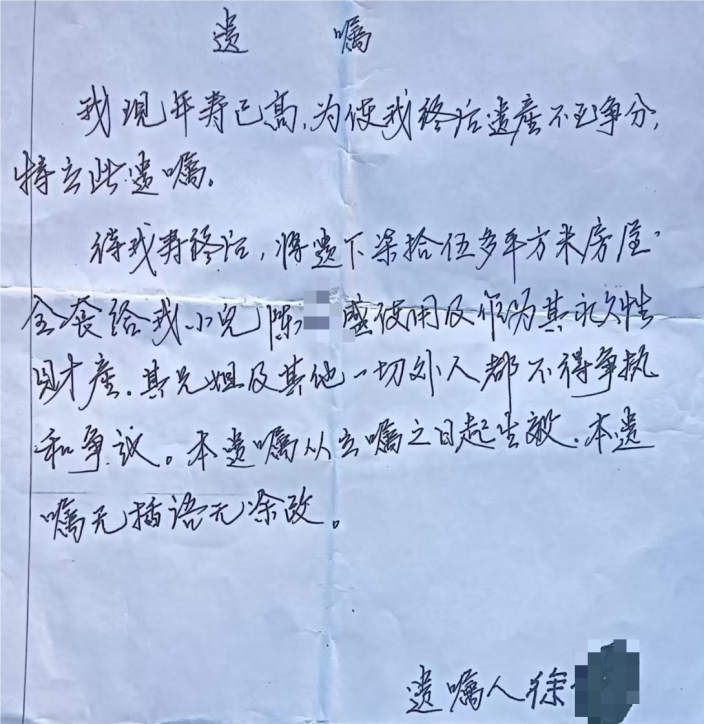 遗 嘱
我现年寿已高,为使我终后遗产不至争分,
特立此遗嘱。
待我寿终后,将遗下柒拾伍多平方米房屋
全套给我小儿陈 盛使用及作为其永久性
财产.其兄姐及其他一切外人都不得争执
和争议。本遗嘱从立嘱之日起生效.本遗
嘱无插语无涂改。
遗嘱人徐